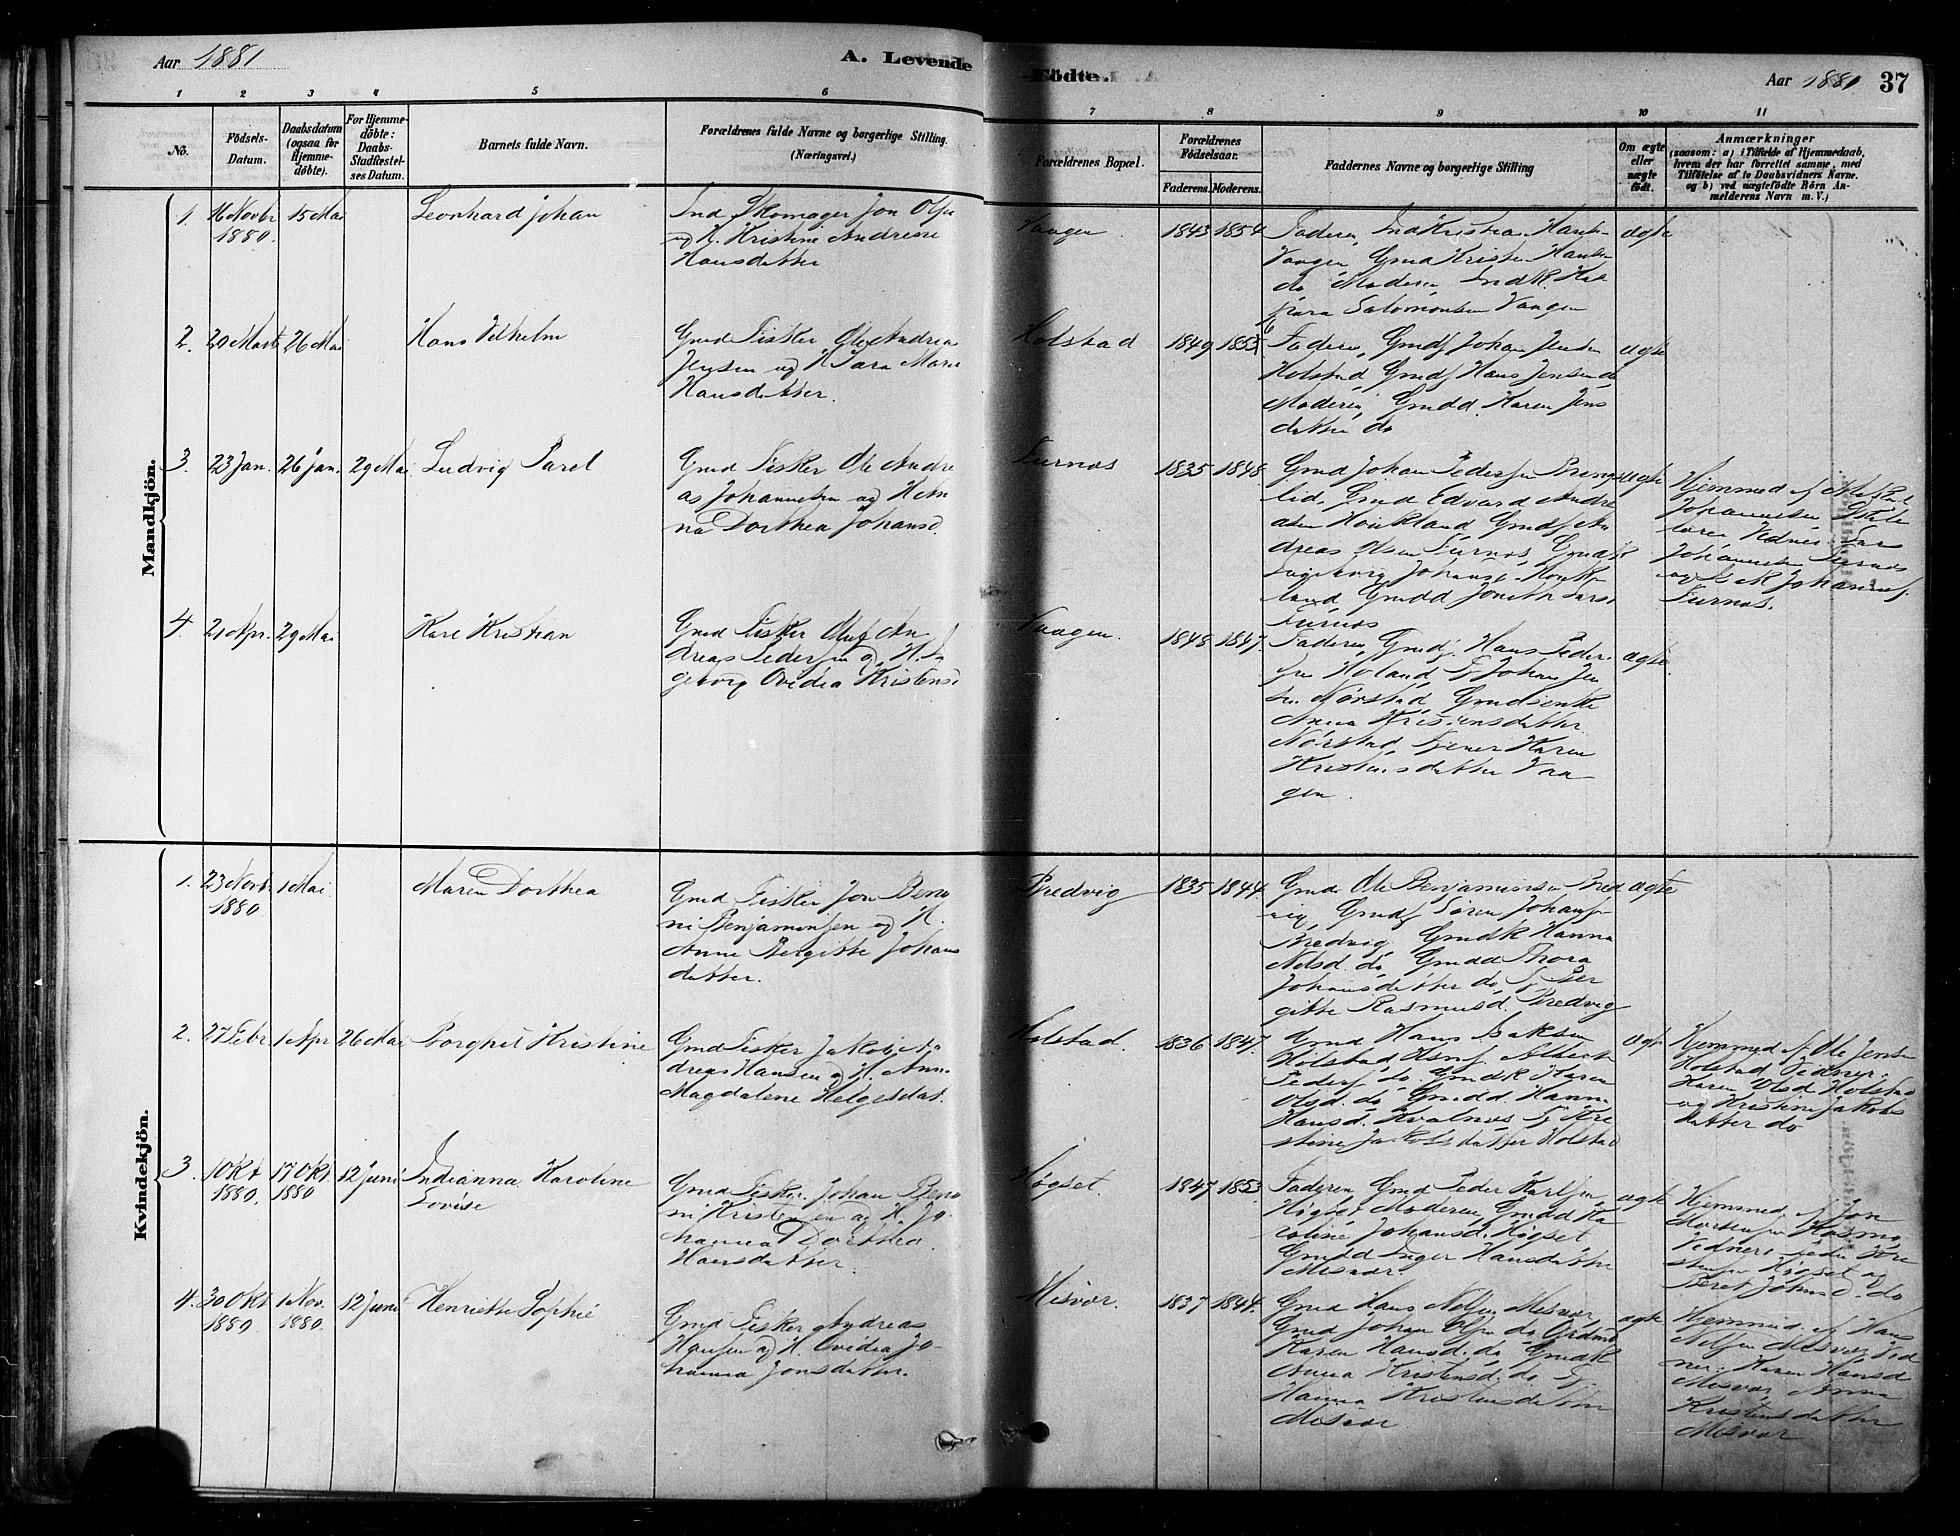 Aar 1881
A. Levende
-Födte.
Aar 1881
37
1 2 3 4 5 6 7 8 9 10 11
No.
Födsels-
Datum.
Daabsdatum
(ogsaa for
Hjemme-
döbte).
For Hjemme-
döbte:
Daabs-
Stadfæstel-
ses Datum.
Barnets fulde Navn.
Forældrenes fulde Navne og borgerlige Stilling.
(Næringsvei.)
Forældrenes Bopæl.
Forældrenes
Födselsaar.
Faderens. Moderens.
Faddernes Navne og borgerlige Stilling
Om ægte
eller
uægte
födt.
Anmærkninger
(saasom: a) i Tilfælde af Hjemmedaab,
hvem der har forrettet samme, med
Tilföielse af to Daabsvidners Navne.
og b) ved uægtefödte Börn An-
melderens Navn m. V.)
Mandkjön.
1. 16 Novbr
1880.
15 Mai
Leonhard Johan
Ind Skomager Jon Olsen
og H. Kristine Andrine
Hansdatter
Vaagen
1843 1854
Faderen, Ind Kristian Hans-
Vaagen, Gmd Kristen Hansen
do Moderen, Indk.
Salomonsen Vaagen
ægte
2. 20 Marts 26 Mai
Hans Vilhelm
Gmd Fisker Ole Andrea
Jensen og H Sara Marie
Hansdatter.
Holstad
1849 1855
Faderen, Gmdf Johan Jensen
Holstad, Gmdf Hans Jensen do
Moderen, Gmdd. Karen Jens
datter do
ægte
3. 23 Jan. 26 Jan. 29 Mai
Ludvig Parel
Gmd Fisker Ole Andre
as Johannesen og H An
na Dorthea Johansd.
Furnes
1835 1848
Gmd Johan Pedersen
lid, Gmd Edvard Andre
asen Houkland Gmdf An
dreas Olsen Furnes, Gmdk
Ingeborg Johansd. Houk
land Gmdd
Furnes
ægte
Hjemmed af
Johannesen
Johannesen Furnes
og Johannes.
Furnes.
4 21 Apr. 29 Mai
Karl Kristian
Gmd Fisker Oluf An
dreas Pedersen og H. In
geborg Ovidia Kristensd
Vaagen.
1848 1847.
Faderen, Gmdf. Hans Peder
sen Holand, Johan Jen
sen Nørstad, Gmdsenke
Anna Kristensdatter
Nørstad, Tjener Karen
Kristensdatter Vaa
gen.
ægte
Kvindekjön.
1. 23 Novb.
1880
1 Mai
Maren Dorthea
Gmd Fisker Jon Beno
ni Benjaminsen og H.
Anne Bergitte Johans
datter.
Bredvig
1835 1844.
Gmd Ole Benjaminsen Bred
vig, Gmdf Søren Johansen
Bredvig Gmdk Hanna
Nelsd. do, Gmdd Thora
Johansdatter do, Ber
gitte Rasmusd. Bredvig
ægte
2. 27 Febr. 1 Apr 26 Mai
Borghil Kristine
Gmd Fisker Jakob An
dreas Hansen og H. Anne
Magdalene Helgesdat.
Holstad.
1836 1847.
Gmd Hans Isaksen
Holstad, Albert
Peders. do, Gmdk Karen
Olsd. do, Gmdd Hanna
Hansd. Hvalnes, Kri
stine Jakobsdatter Holstad
ægte
Hjemmed af Ole Jensen
Holstad Vidner:
Karen Olsd Holstad
og Kristine Jakobs
datter do
3. 10 Okt
1880.
17 Okt.
1880
12 Juni
Indianna Karoline
Lovise
Gmd Fisker, Johan Beno
ni Kristensen og H. Jo
hanna Dorthea
Hansdatter
Høgset.
1847 1853
Faderen, Gmd Peder Karlsen
Høgset, Moderen, Gmdd Ka
roline Johansd. Høgset
Gmdd Inger Hansdatter
Misvær
ægte
Hjemmed. af Jon
Mortensen Kosmo
Vidner: Peder Kri
stensen Høgset og
Beret Johansd. do
4. 30 Okt
1880.
1 Nov.
1880.
12 Juni
Henriette Sophie
Gmd Fisker Andreas
Hansen og H. Ovidia Jo-
hanna Jonsdatter.
Misvær.
1837 1844.
Gmd Hans Nelsen Misvær
Gmd Johan Olsen do
Karen Hansd. do, Gmdk
Anna Kristensd. do,
Hanna Kristensdatter
Misvær
ægte
Hjemmed. af Hans
Nelsen Misvær Vid
ner: Karen Hansd
Misvær, Anna
Kristensdatter
Misvær